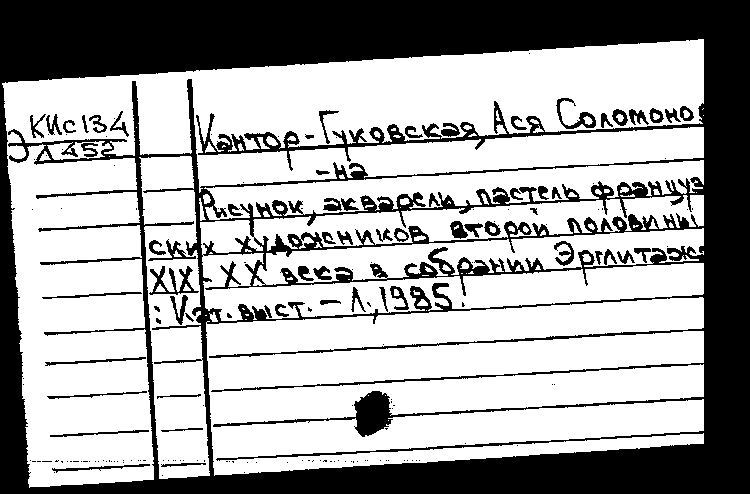 Э КИс134
Л452
Кантор-Гуковская, Ася Соломонов
-на
Рисунок, акварель, пастель француз
ских художников второй половины
XIX - XX века в собрании Эрмитажа
: Кат. выст. - Л., 1985.